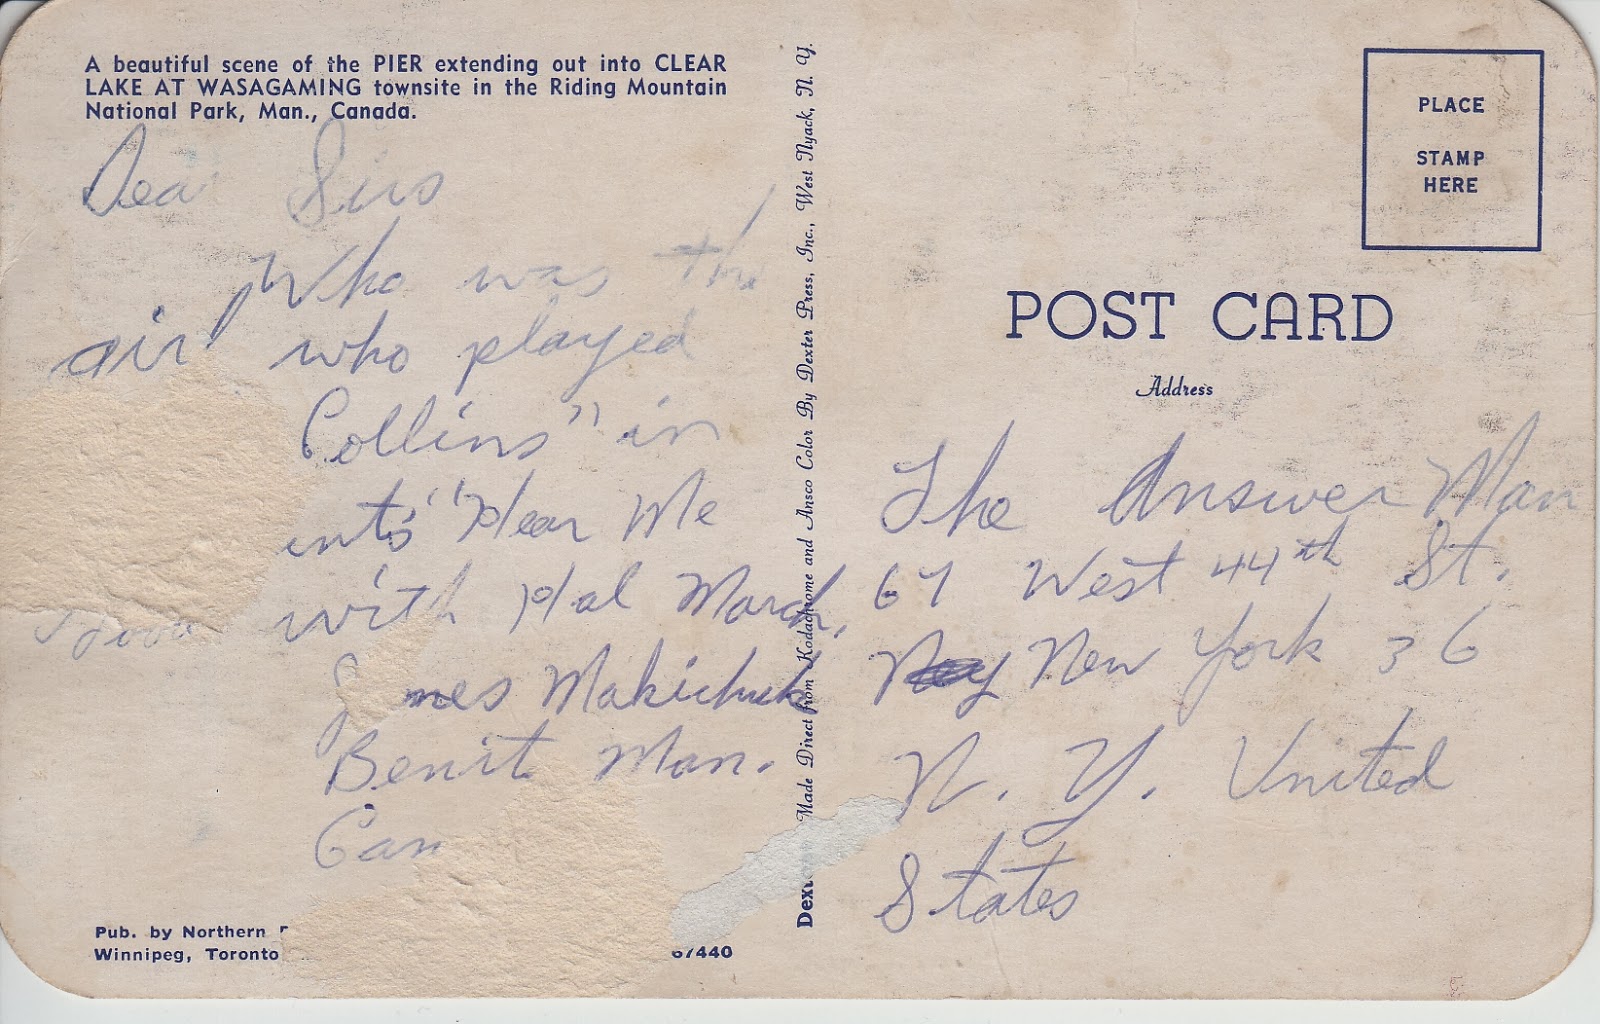 A beautiful scene of the PIER extending out into CLEAR
LAKE AT WASAGAMING townsite in the Riding Mountain
National Park, Man., Canada.
Dea Sirs
Who was the
air who played
Collins" in
"Hear Me
with Hal March.
Makichuk
Benit Man.
Can
Pub. by Northern
Winnipeg, Toronto
67440
Made Direct from Kodachrome and Ansco Color By Dexter Press, Inc., West Nyack, N. Y.
PLACE
STAMP
HERE
POST CARD
Address
The Answer Man
67 West 44th St.
New York 36
N. Y. United
States